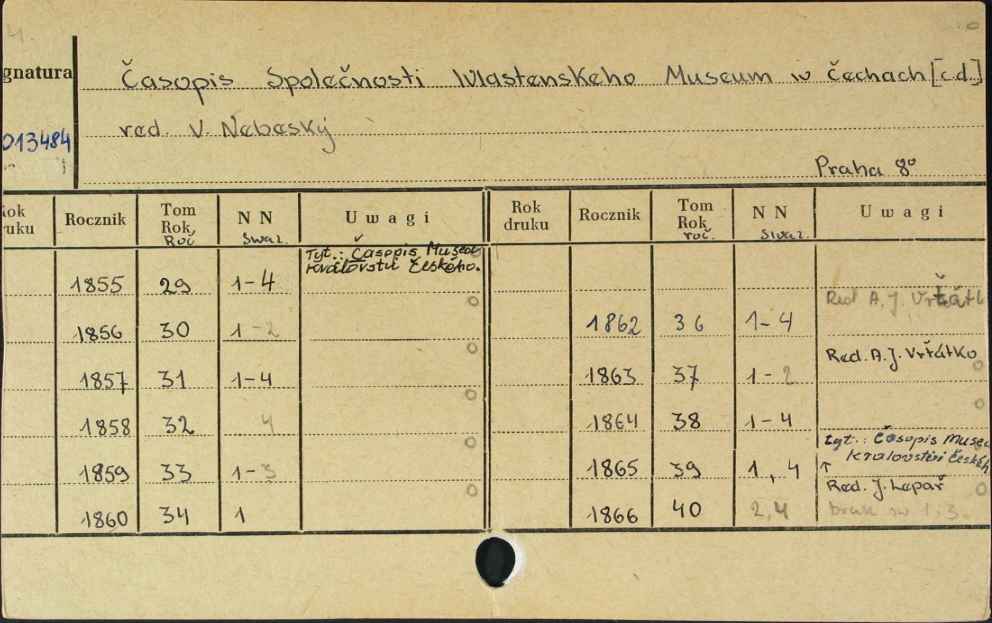 gnatura
Časopis Společnosti Wlastenskeho Museum w čechach [c.d.]
013484
red. V. Nebeský
Praha 8°
Rok druku Rocznik Tom Rok, Roč NN Swaz. Uwagi Rok druku Rocznik Tom Rok roč. NN Swaz. Uwagi
Tyt.: Časopis Musea
Království Českého.
1855 29 1-4
Red A. J. Vrťátk
1856 30 1-2 1862 36 1-4
Red. A. J. Vrťátko
1857 31 1-4 1863 37 1-2
1858 32 4 1864 38 1-4
tyt.: Časopis Musea
Kralovstvi Českéh
1859 33 1-3 1865 39 1, 4
↑
Red. J. Lepař
1860 34 1 1866 40 2,4 brak sw 1, 3.